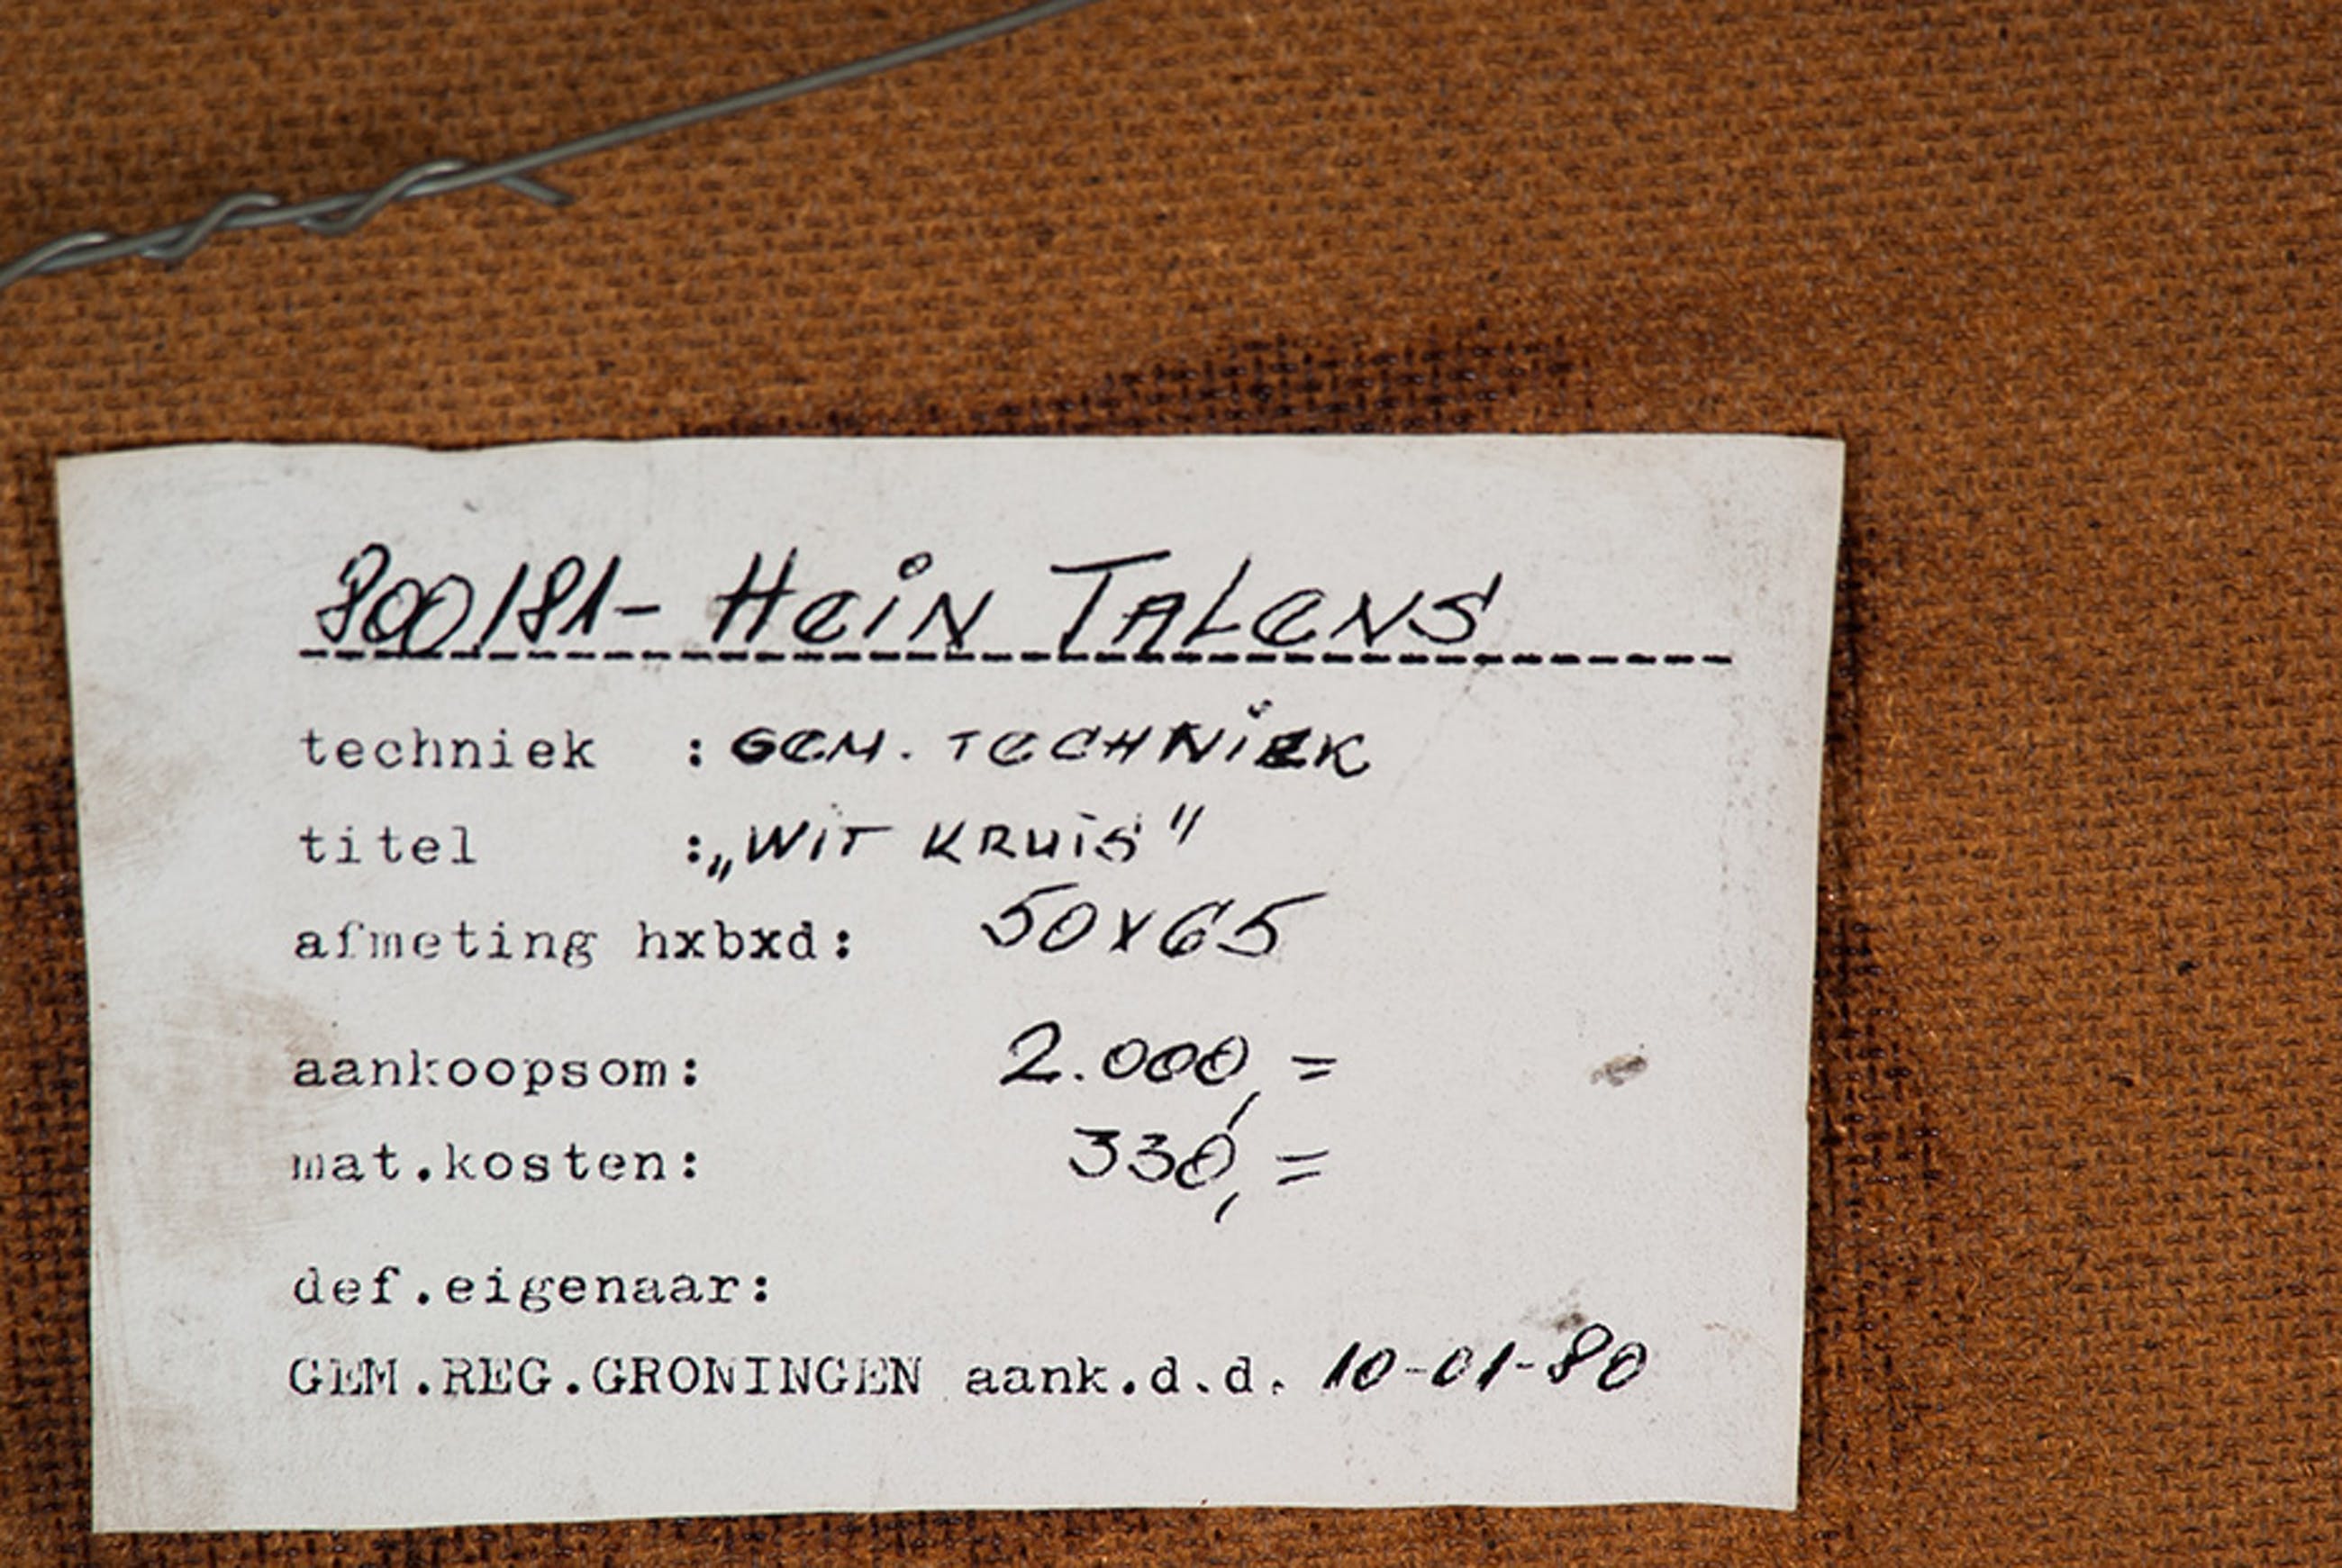 800/81- Hein Talens
techniek : GEM. TECHNIEK
titel :„WIT KRUIS"
afmeting hxbxd: 50x65
aankoopsom: 2.000,=
mat.kosten: 330,=
def.eigenaar:
GEM.REG.GRONINGEN aank.d.d. 10-01-80